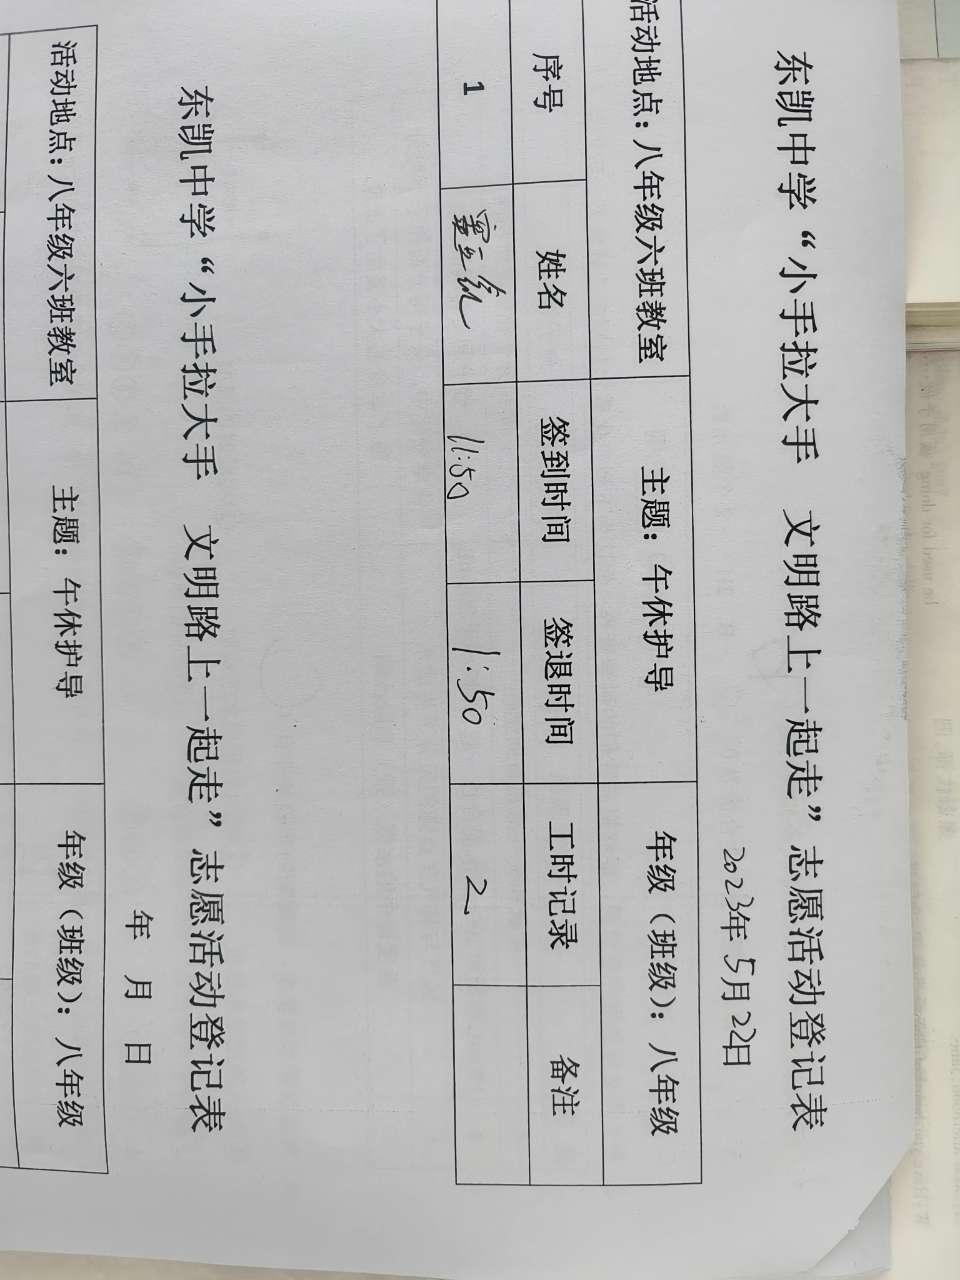 东凯中学“小手拉大手 文明路上一起走”志愿活动登记表
2023年5月22日
活动地点：八年级六班教室 主题：午休护导 年级（班级）：八年级
序号 姓名 签到时间 签退时间 工时记录 备注
1 11:50 1:50 2
东凯中学“小手拉大手 文明路上一起走”志愿活动登记表
年 月 日
活动地点：八年级六班教室 主题：午休护导 年级（班级）：八年级